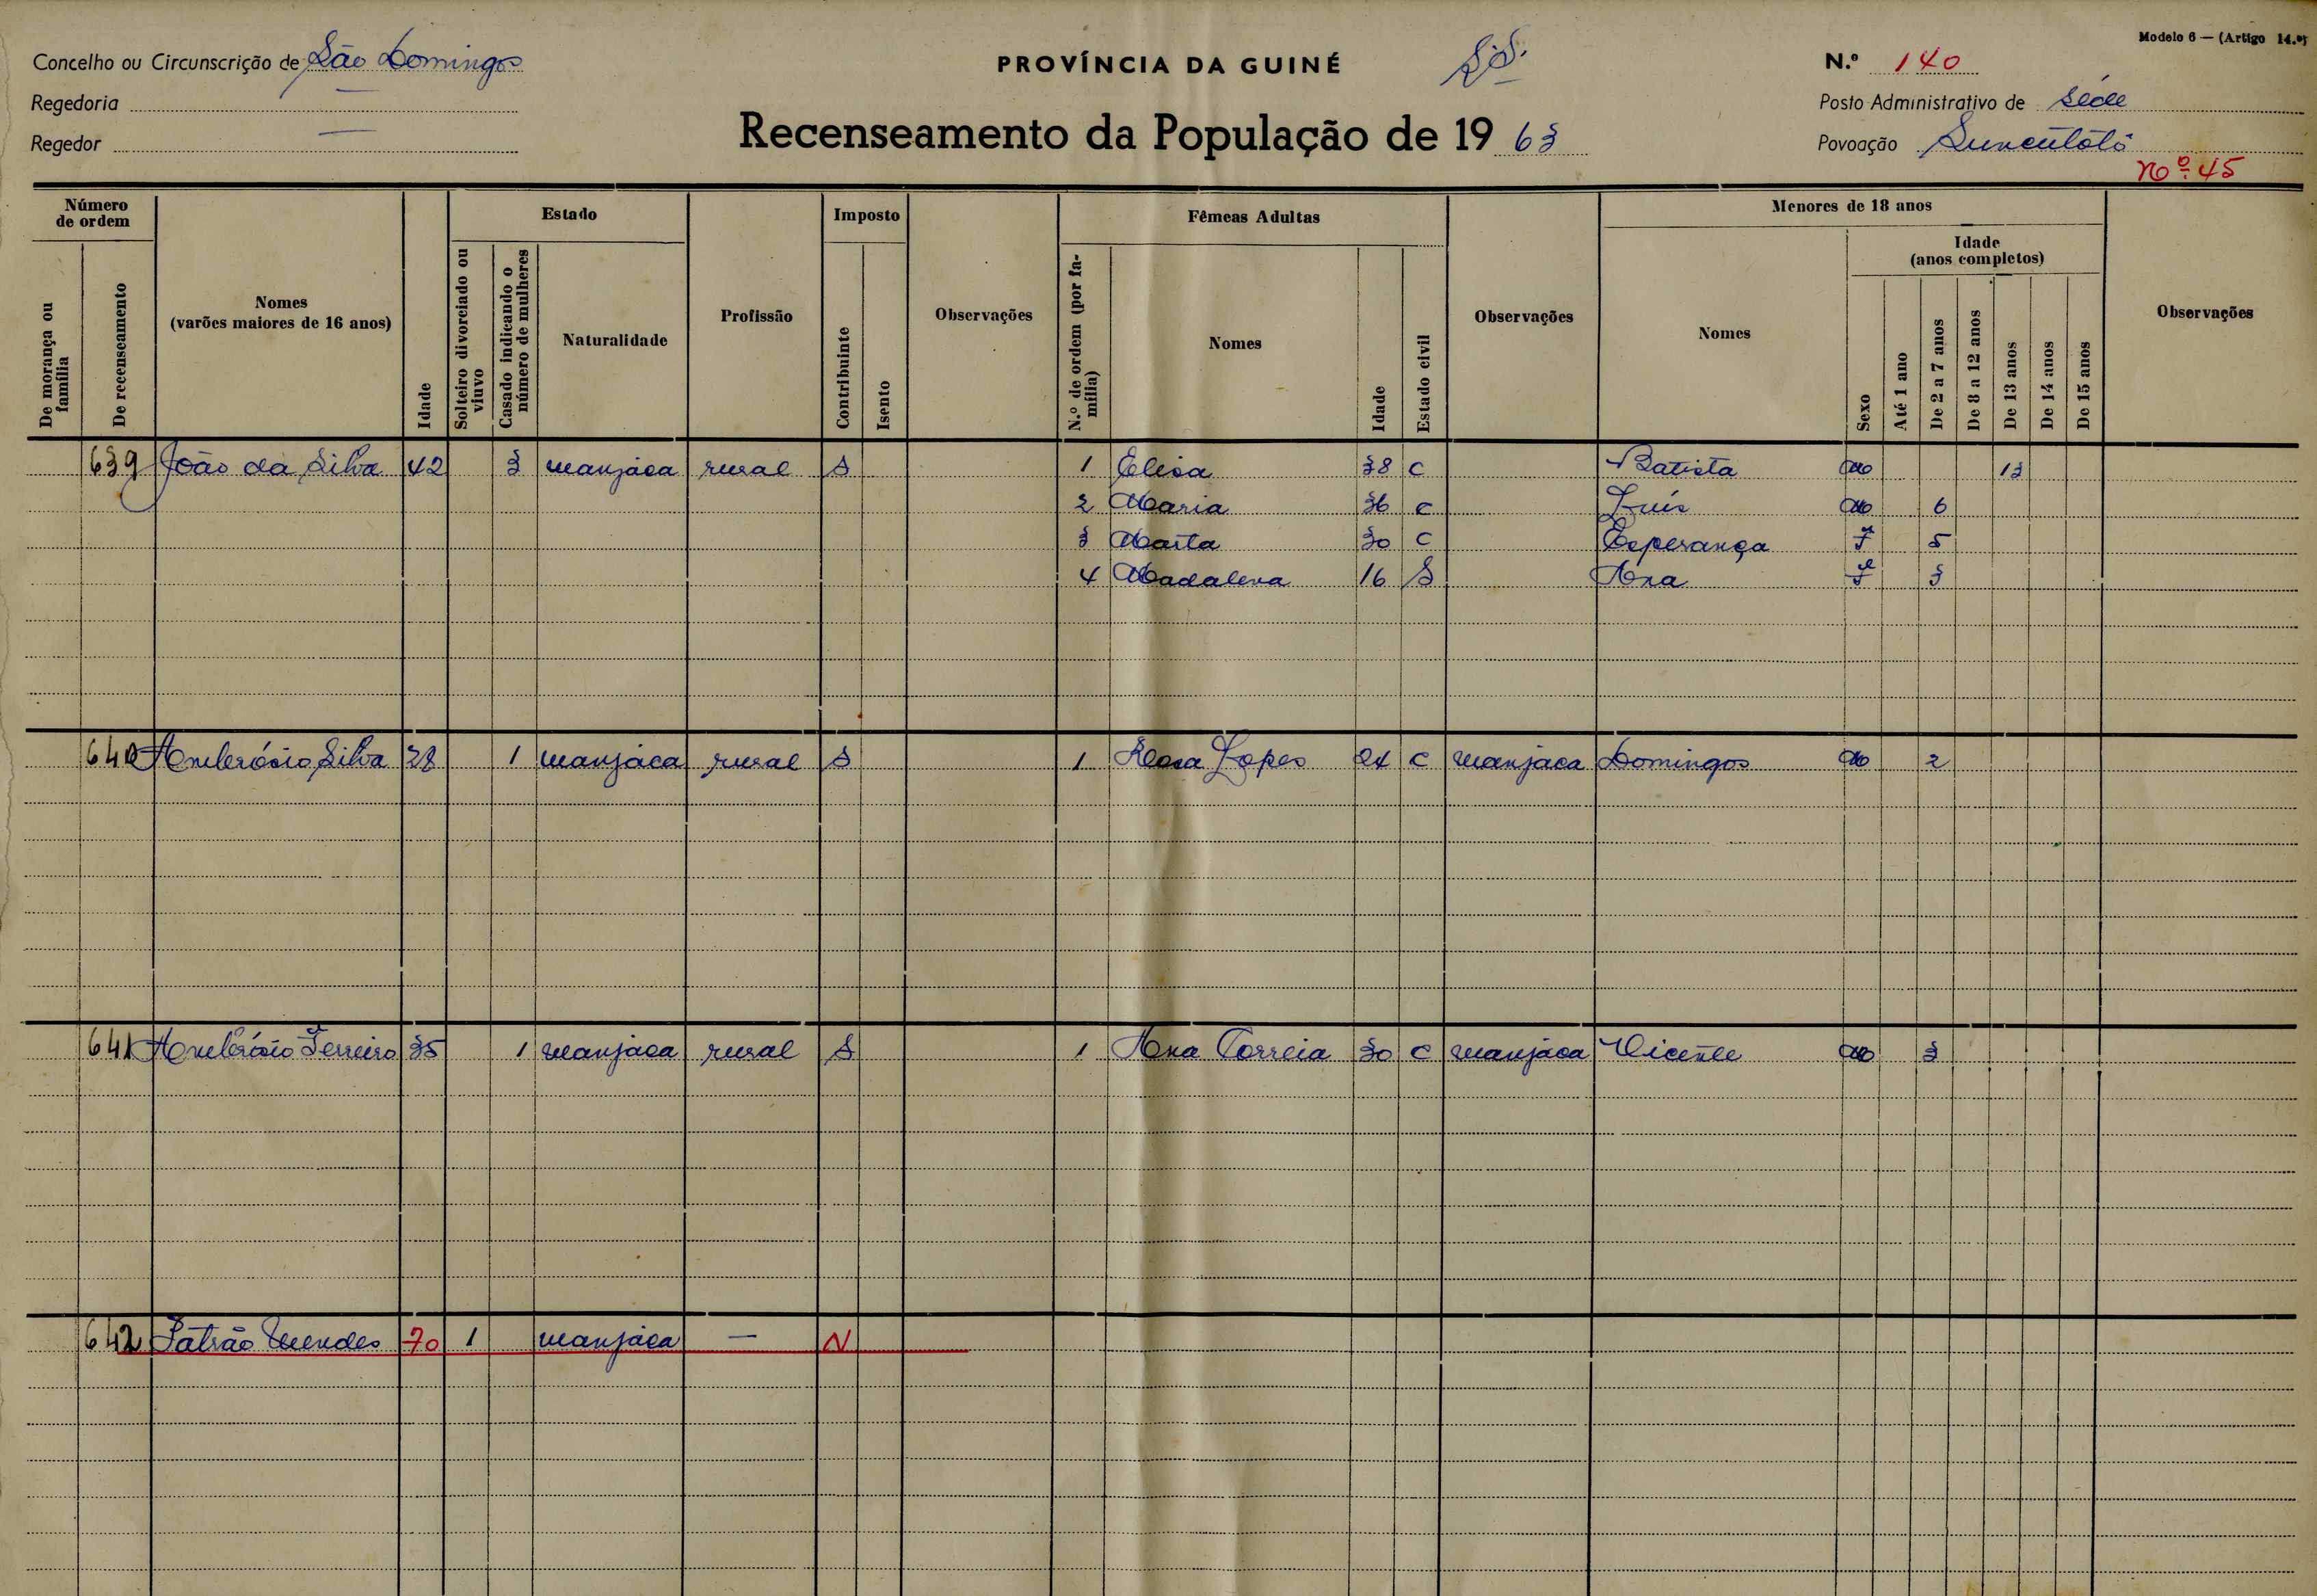 Modelo 6 — (Artigo 14.º)
Concelho ou Circunscrição de São Domingos
PROVÍNCIA DA GUINÉ
N.º 140
Regedoria —
Posto Administrativo de Séde
Regedor —
Recenseamento da População de 19 63
Povoação Suncutôtô
Nº 45
Número de ordem
De morança ou família
De recenseamento
Nomes (varões maiores de 16 anos)
Idade
Estado
Solteiro divorciado ou viuvo
Casado indicando o número de mulheres
Naturalidade
Profissão
Imposto
Contribuinte
Isento
Observações
Fêmeas Adultas
N.º de ordem (por família)
Nomes
Idade
Estado civil
Observações
Menores de 18 anos
Nomes
Sexo
Idade (anos completos)
Até 1 ano
De 2 a 7 anos
De 8 a 12 anos
De 13 anos
De 14 anos
De 15 anos
Observações
639 João da Silva 42 3 manjaca rural S 1 Elisa 38 C Batista M 13
2 Maria 36 C Luís M 6
3 Marta 30 C Esperança F 5
4 Madalena 16 S Ana F 3
640 Ambrósio Silva 28 1 manjaca rural S 1 Rosa Lopes 24 C manjaca Domingos M 2
641 Ambrósio Ferreira 35 1 manjaca rural S 1 Ana Correia 30 C manjaca Vicente M 3
642 Patrão Mendes 70 1 manjaca — N